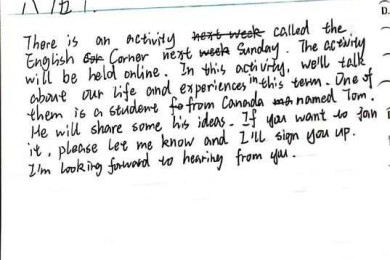 There is an activity next week called the
English Cor Corner next week Sunday. The activity
will be held online. In this activity, we'll talk
about our life and experiences in this term. One of
them is a student fo from Canada named Tom.
He will share some his ideas. If you want to join
it, please let me know and I'll sign you up.
I'm looking forward to hearing from you.